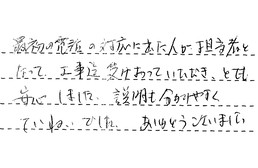 最初の電話の対応に出た人が担当者と
なって、工事迄受けおっていただき、とても
安心しました。説明も分かりやすく
ていねいでした。ありがとうございました